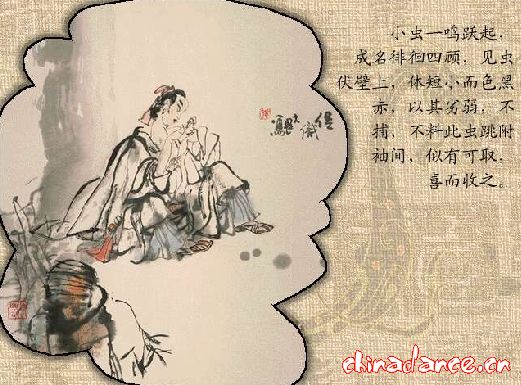 小虫一鸣跃起，
成名徘徊四顾，见虫
伏壁上，体短小而色黑
赤，以其劣弱，不
捕，不料此虫跳附
袖间，似有可取，
喜而收之。
chinadance.cn